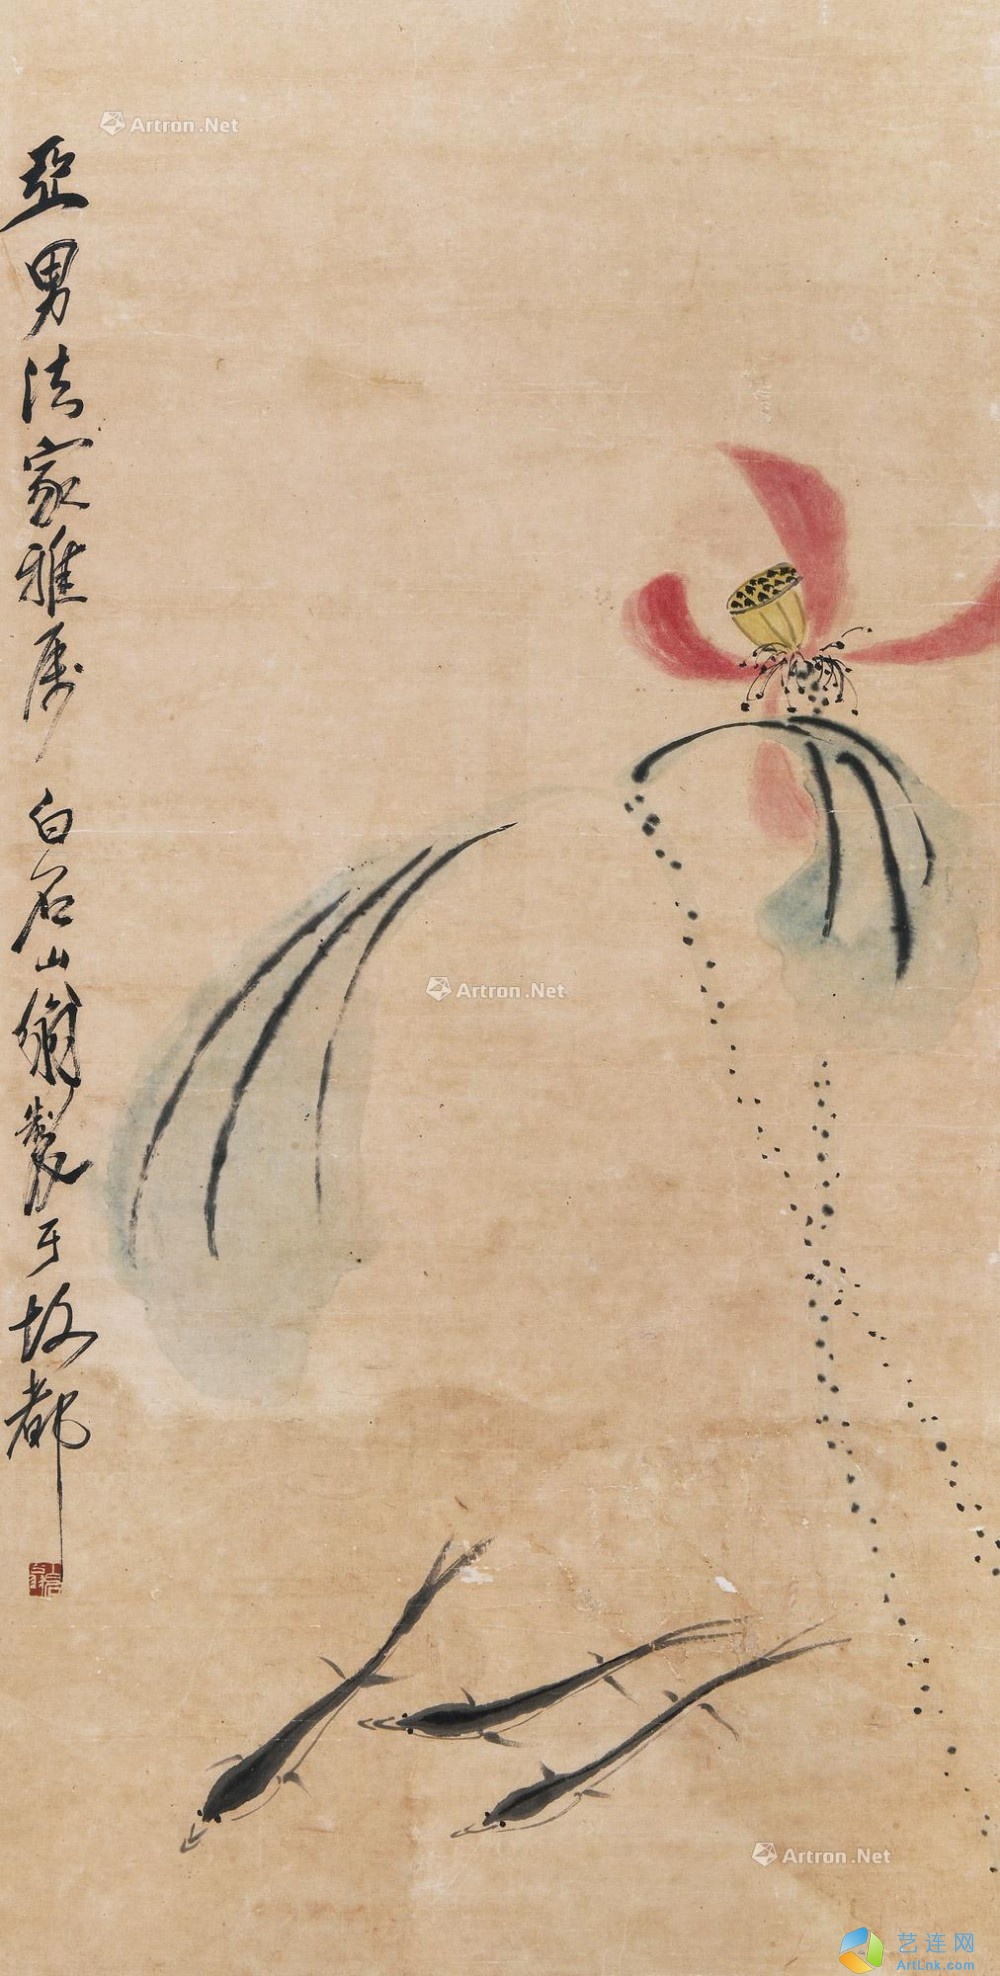 Artron.Net
亞男法家雅属 白石山翁製于故都
Artron.Net
Artron.Net
艺连网
ArtLnk.com